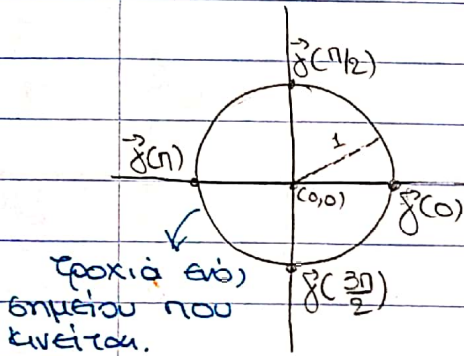 γ⃗(π/2)
1
γ⃗(π)
(0,0)
γ⃗(0)
γ⃗(3π/2)
τροχιά ενός
σημείου που
κινείται.